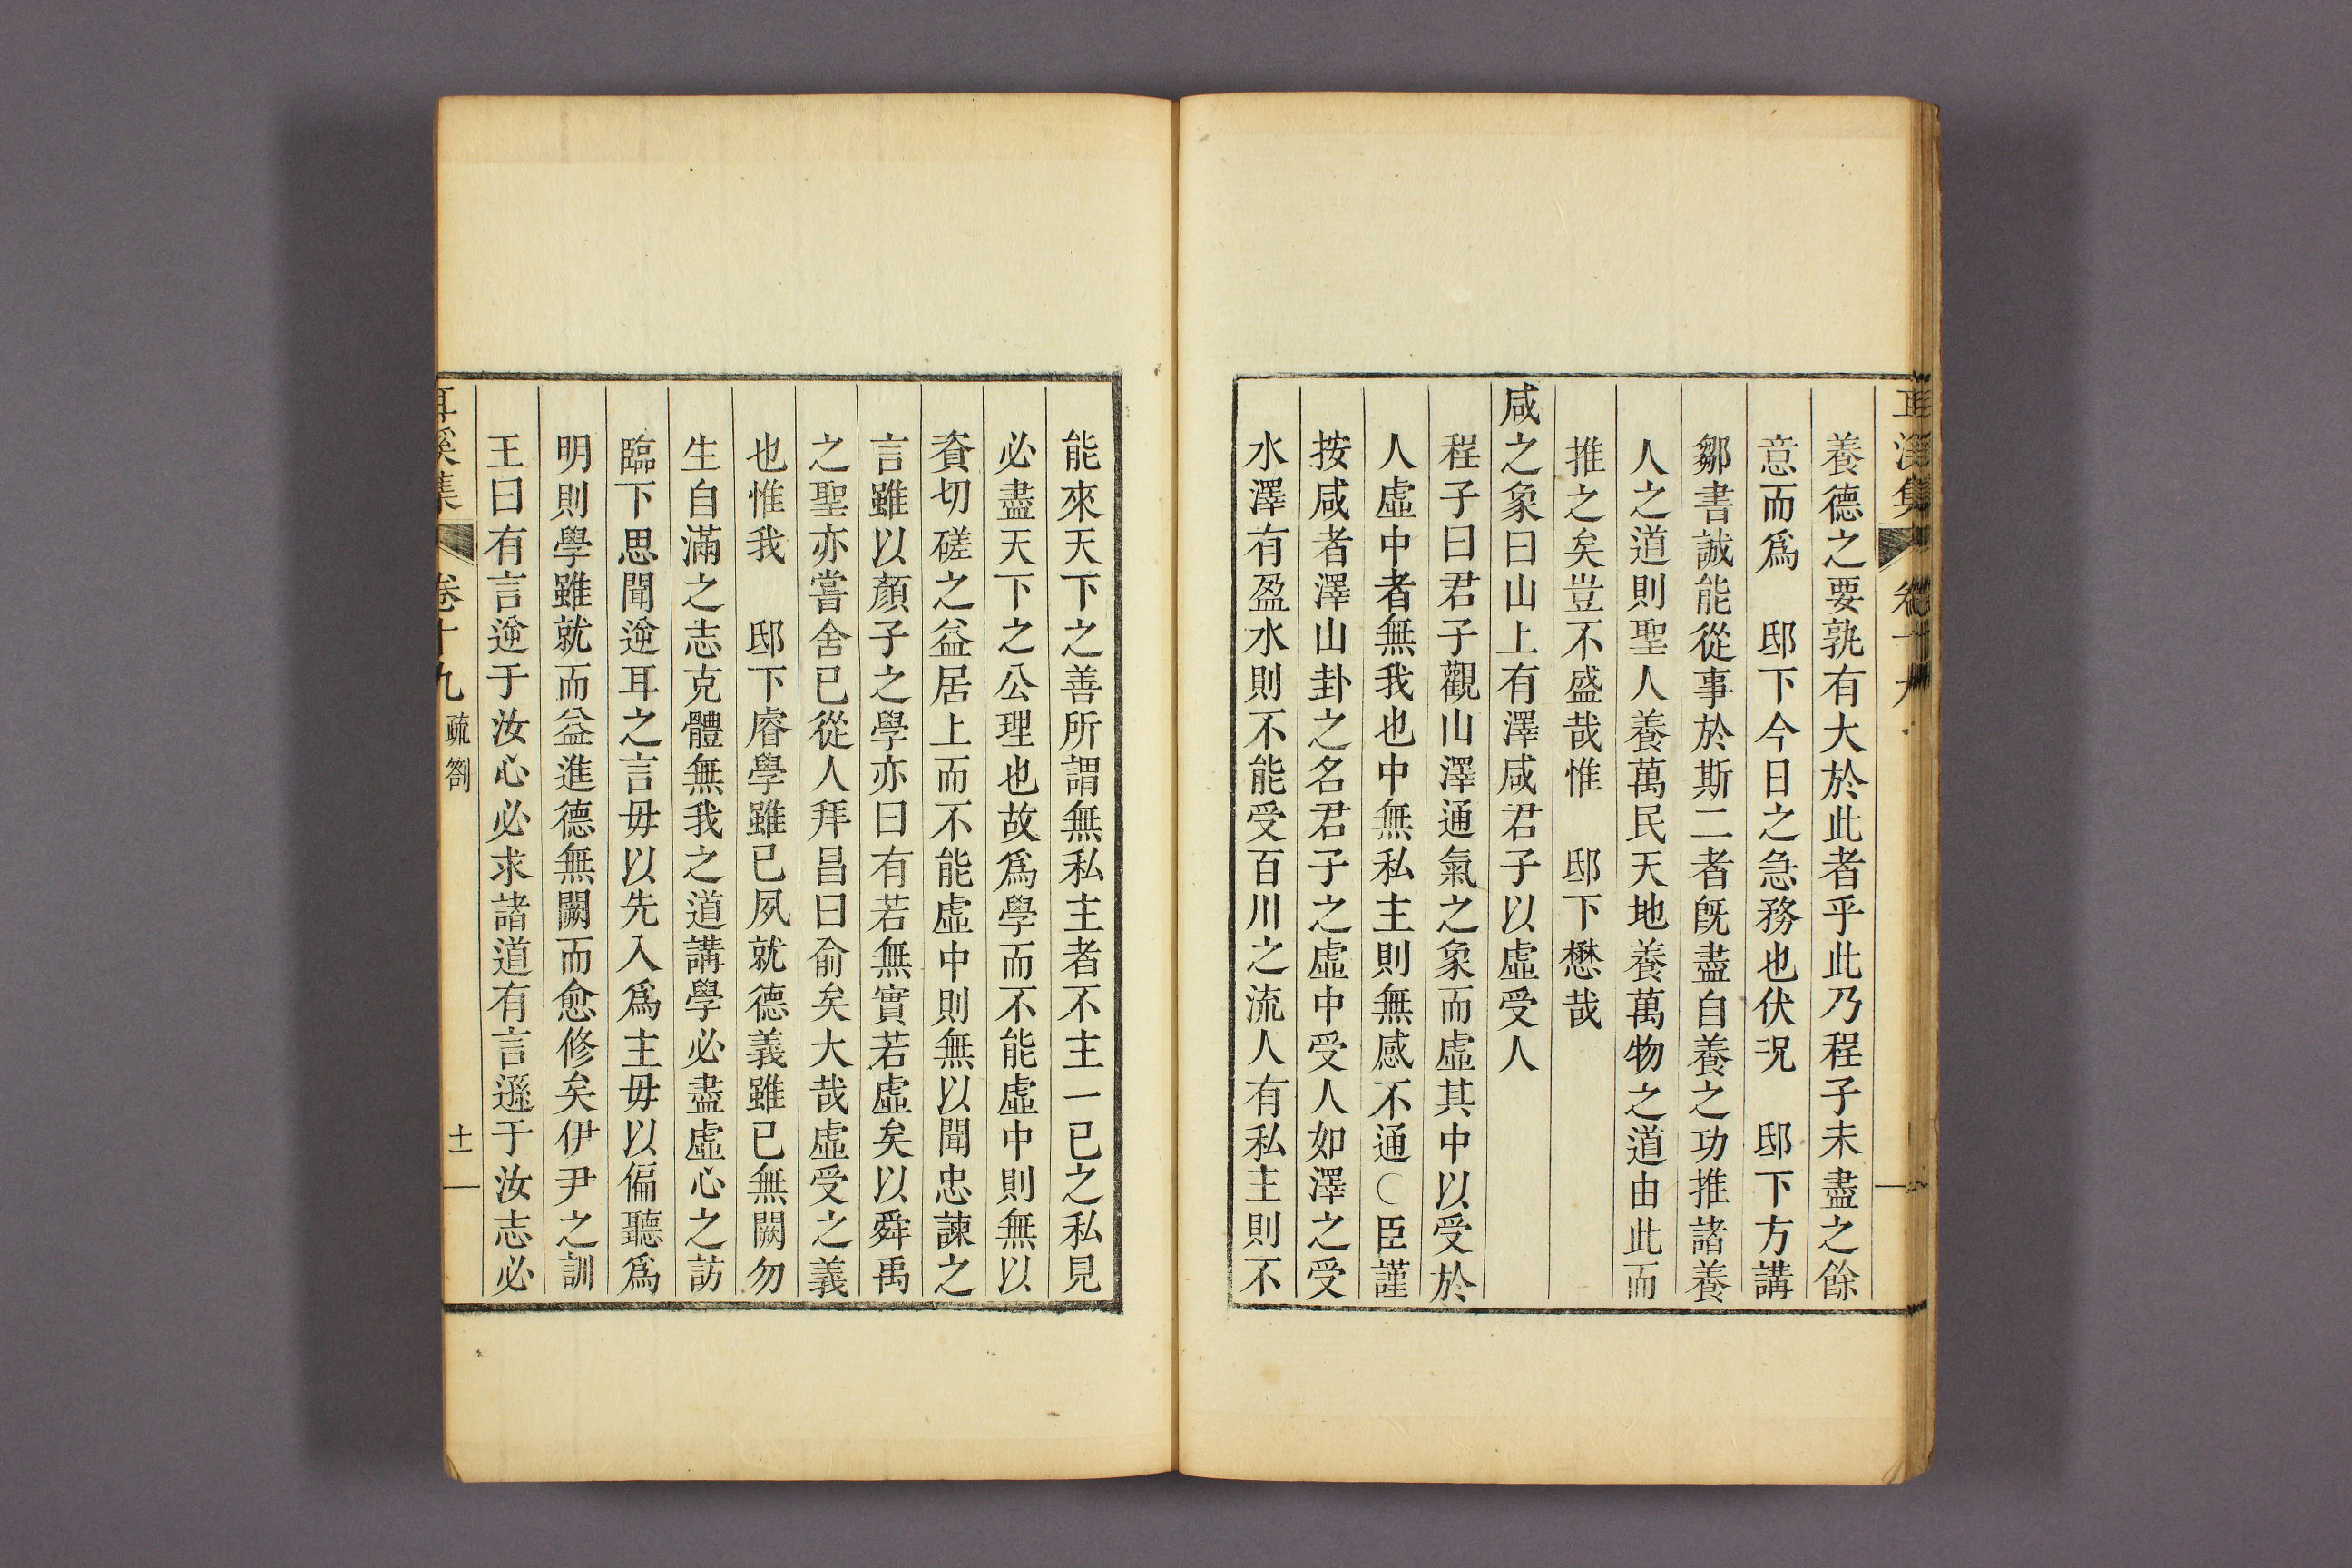 養德之要孰有大於此者乎此乃程子未盡之餘
意而爲　邸下今日之急務也伏況　邸下方講
鄒書誠能從事於斯二者旣盡自養之功推諸養
人之道則聖人養萬民天地養萬物之道由此而
推之矣豈不盛哉惟　邸下懋哉
咸之象曰山上有澤咸君子以虛受人
程子曰君子觀山澤通氣之象而虛其中以受於
人虛中者無我也中無私主則無感不通○臣謹
按咸者澤山卦之名君子之虛中受人如澤之受
水澤有盈水則不能受百川之流人有私主則不
能來天下之善所謂無私主者不主一已之私見
必盡天下之公理也故爲學而不能虛中則無以
資切磋之益居上而不能虛中則無以聞忠諫之
言雖以顏子之學亦曰有若無實若虛矣以舜禹
之聖亦嘗舍已從人拜昌曰兪矣大哉虛受之義
也惟我　邸下睿學雖已夙就德義雖已無闕勿
生自滿之志克體無我之道講學必盡虛心之訪
臨下思聞逆耳之言毋以先入爲主毋以偏聽爲
明則學雖就而益進德無闕而愈修矣伊尹之訓
王曰有言逆于汝心必求諸道有言遜于汝志必
耳溪集　卷十九　疏箚　十一